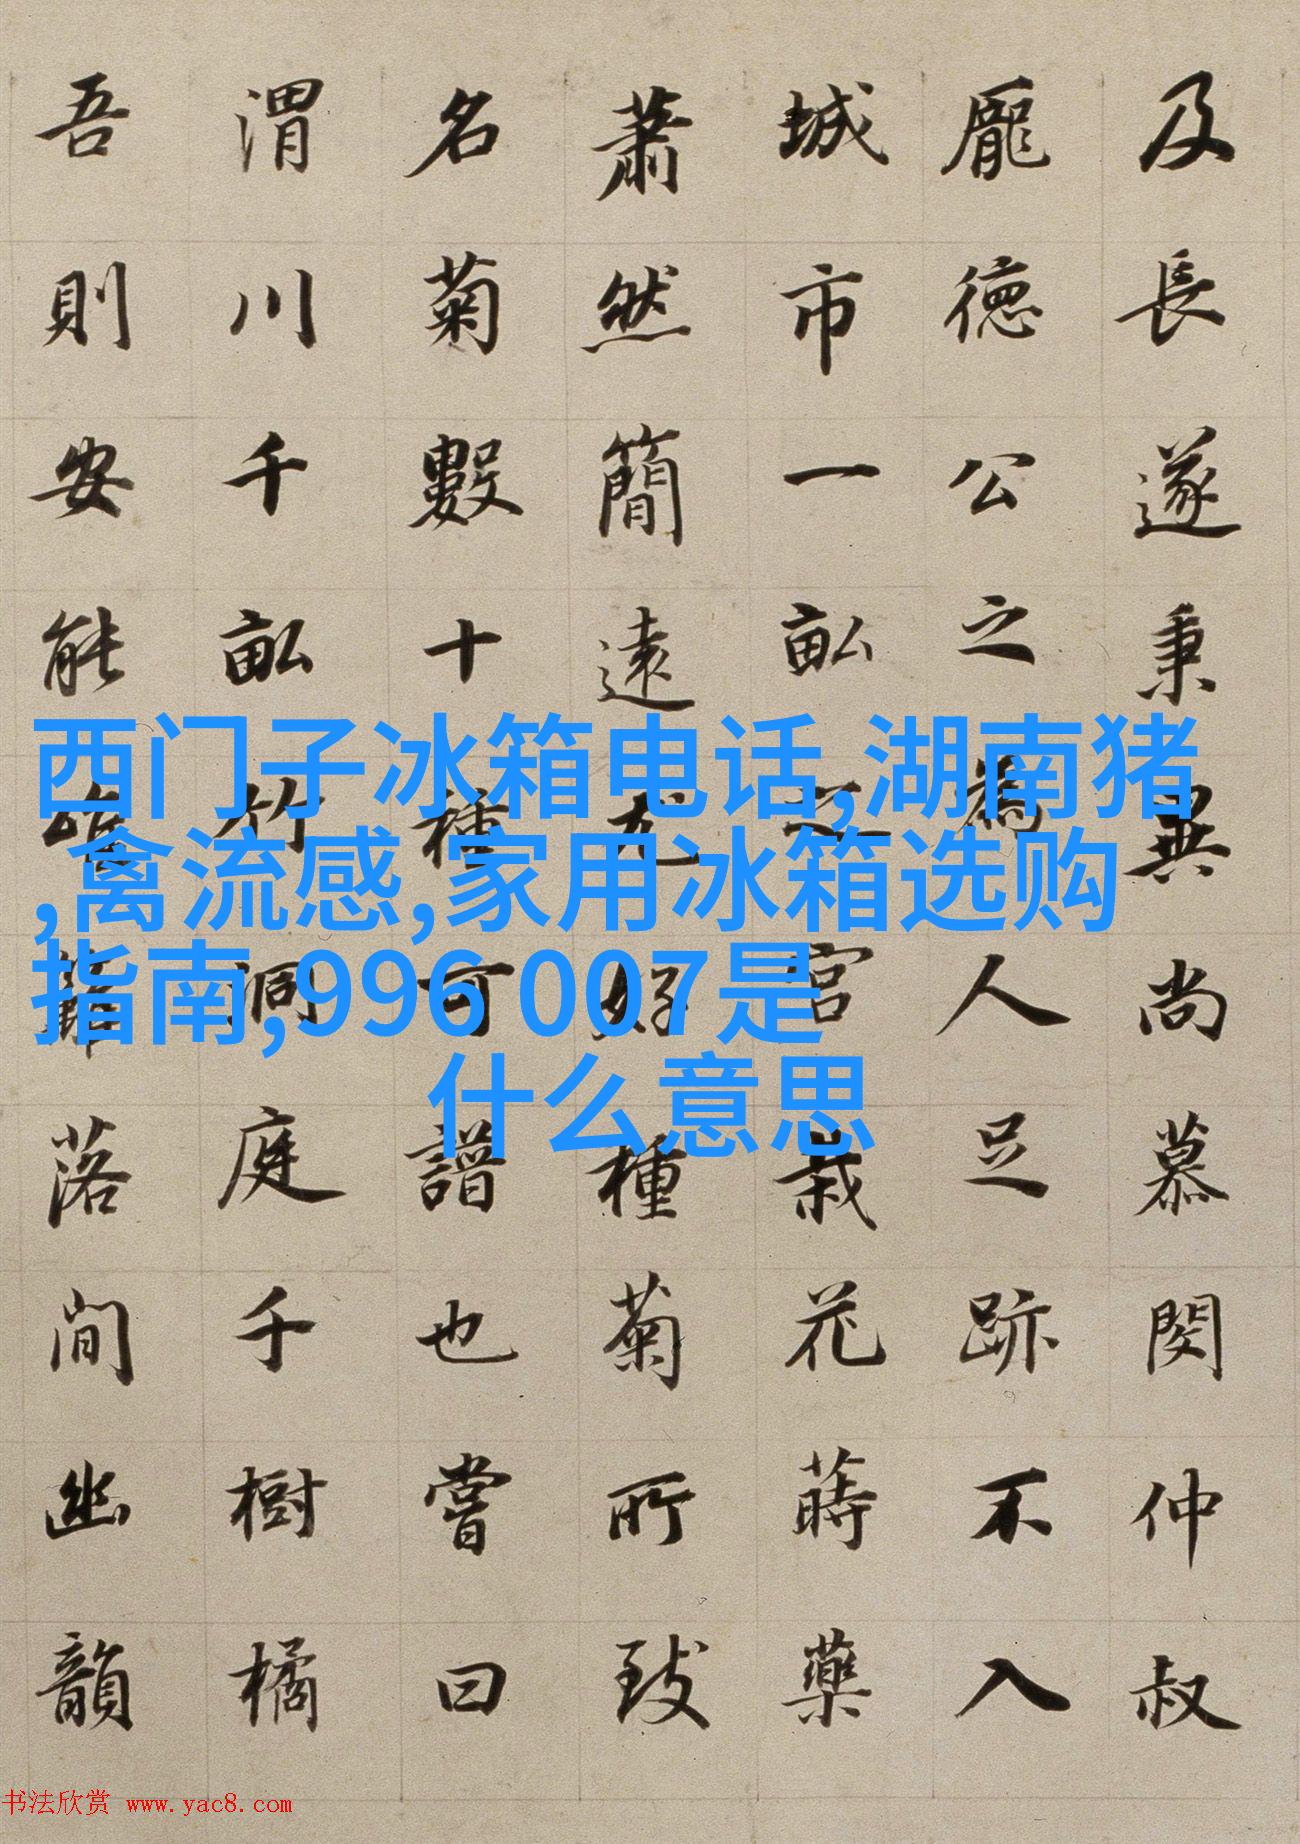 及長遂秉異尚慕閔仲叔
龐德公之為人足跡不入
城市一畝之宮栽花蒔藥
蕭然簡遠尤好種菊所致
名菊數十種可譜也嘗曰
渭川千畝竹洞庭千樹橘
吾則安能唯籬落間幽韻
西门子冰箱电话,湖南猪
,禽流感,家用冰箱选购
指南,996 007是
什么意思
书法欣赏 www.yac8.com